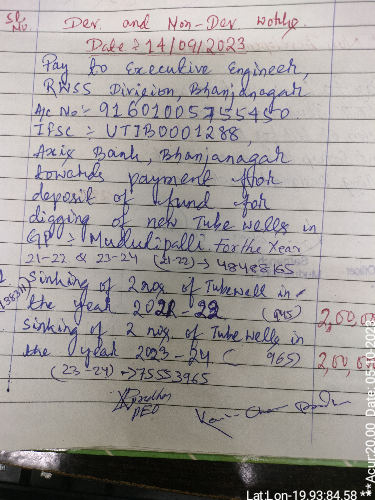 Sl. No.
Dev. and Non-Dev works
Date : 14/09/2023
Pay to Executive Engineer,
RWSS Division, Bhanjanagar
A/c No :- 916010057554
IFSC :- UTIB0001288,
Axis Bank, Bhanjanagar
towards payment for
deposit of fund for
digging of new Tube wells in
GP :> Mudulipalli for the Year
21-22 & 23-24 (21-22) → 48488165
1 Sinking of 2 nos. of Tubewell in
the year 2021-22
2,00,0
Sinking of 2 nos. of Tube wells in
the year 2023-24 ( 965)
2,00,0
(23-24) → 75553965
PEO
Lat:Lon-19.93:84.58
**Acur:20.00 Date: 05-10-2023